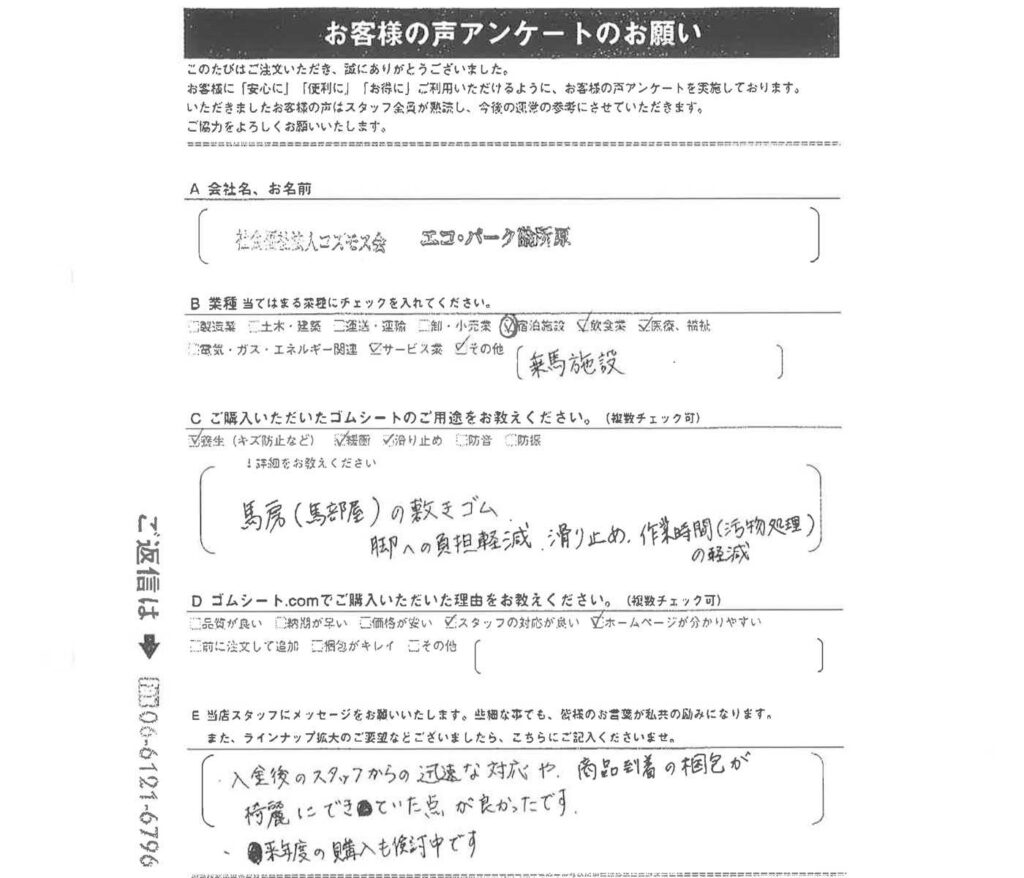 お客様の声アンケートのお願い
このたびはご注文いただき、誠にありがとうございました。
お客様に「安心に」「便利に」「お得に」ご利用いただけるように、お客様の声アンケートを実施しております。
いただきましたお客様の声はスタッフ全員が熟読し、今後の運営の参考にさせていただきます。
ご協力をよろしくお願いいたします。
A 会社名、お名前
社会福祉法人コスモス会 エコ・パーク論所原
B 業種 当てはまる業種にチェックを入れてください。
□製造業 □土木・建築 □運送・運輸 □卸・小売業 ☑宿泊施設 ☑飲食業 ☑医療、福祉
□電気・ガス・エネルギー関連 ☑サービス業 ☑その他 乗馬施設
C ご購入いただいたゴムシートのご用途をお教えください。(複数チェック可)
☑養生(キズ防止など) ☑緩衝 ☑滑り止め □防音 □防振
↓詳細をお教えください
馬房(馬部屋)の敷きゴム
脚への負担軽減、滑り止め、作業時間(汚物処理)
の軽減
D ゴムシート.comでご購入いただいた理由をお教えください。(複数チェック可)
□品質が良い □納期が早い □価格が安い ☑スタッフの対応が良い ☑ホームページが分かりやすい
□前に注文して追加 □梱包がキレイ □その他
E 当店スタッフにメッセージをお願いいたします。些細な事でも、皆様のお言葉が私共の励みになります。
また、ラインナップ拡大のご要望などございましたら、こちらにご記入くださいませ。
・入金後のスタッフからの迅速な対応や、商品到着の梱包が
綺麗にできていた点が良かったです。
・来年度の購入も検討中です
ご返信は ➡ FAX 06-6121-6796